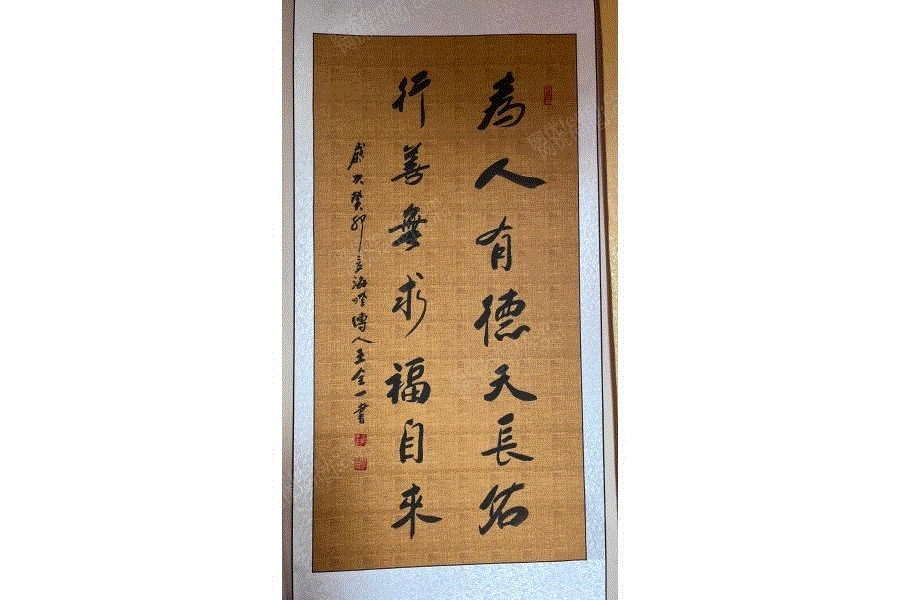 為人有德天長佑
行善無求福自來
歲次癸卯言海堂傳人王金一書